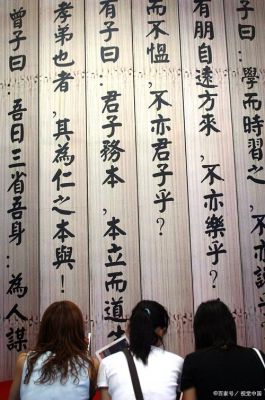 子曰：學而時習之，不亦說乎
有朋自遠方來，不亦樂乎？
而不愠，不亦君子乎？
有子曰：君子務本，本立而道生
孝弟也者，其為仁之本與！
曾子曰：吾日三省吾身：為人謀
百家号/视觉中国